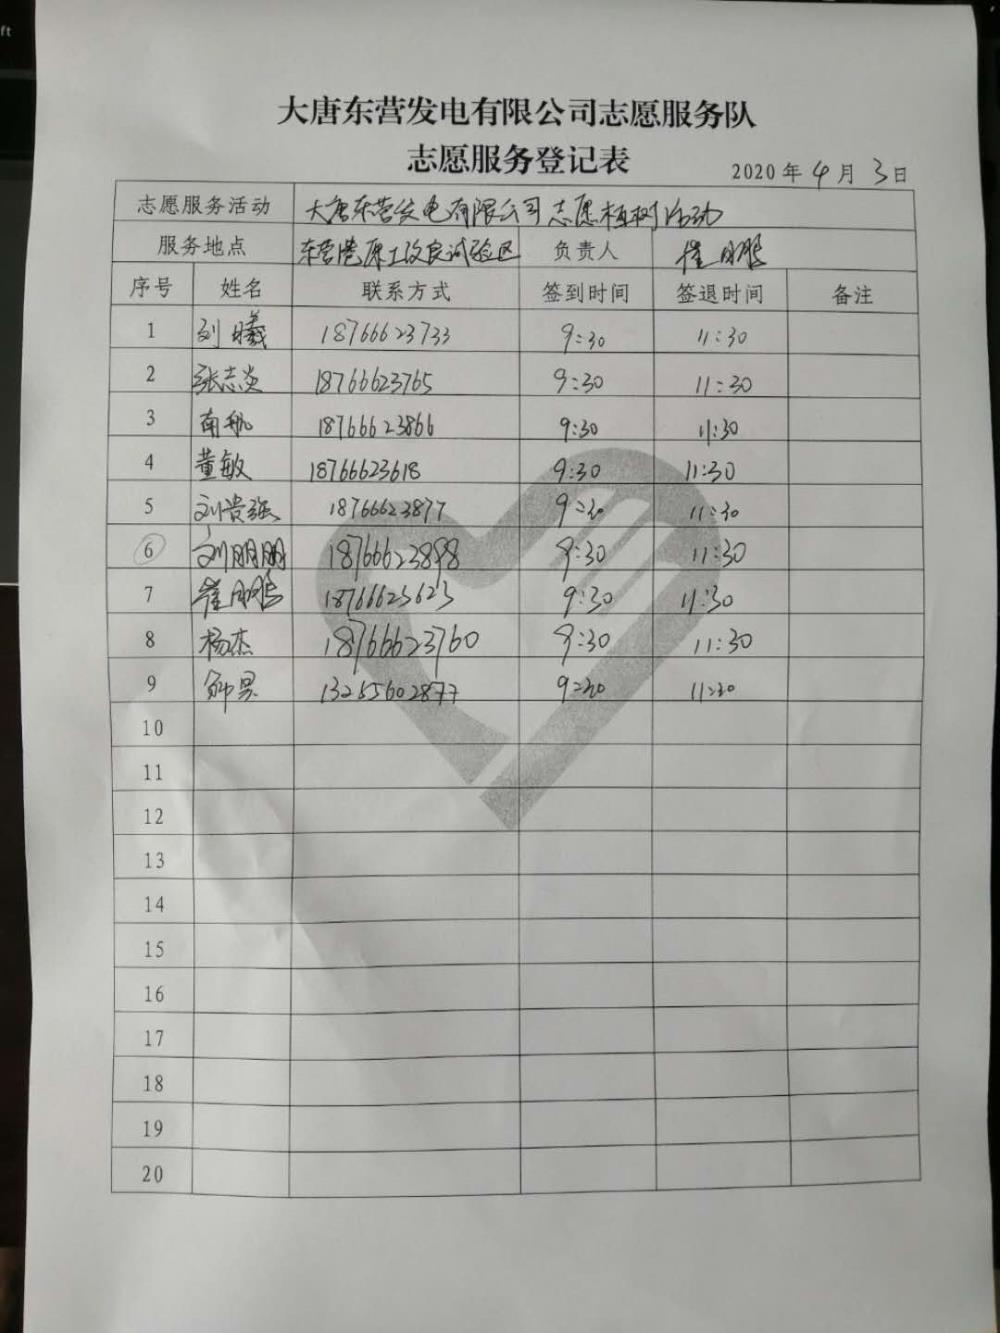 ft
大唐东营发电有限公司志愿服务队
志愿服务登记表
2020年4月3日
志愿服务活动 大唐东营发电有限公司志愿植树活动
服务地点 东营港原土改良试验区 负责人 崔鹏
序号 姓名 联系方式 签到时间 签退时间 备注
1 刘曦 18766623733 9:30 11:30
2 张志炎 18766623765 9:30 11:30
3 南帆 18766623866 9:30 11:30
4 董敏 18766623618 9:30 11:30
5 刘贵强 18766623877 9:30 11:30
6 刘朋朋 18766623898 9:30 11:30
7 崔鹏 18766623623 9:30 11:30
8 杨杰 18766623760 9:30 11:30
9 13255602877 9:30 11:30
10
11
12
13
14
15
16
17
18
19
20